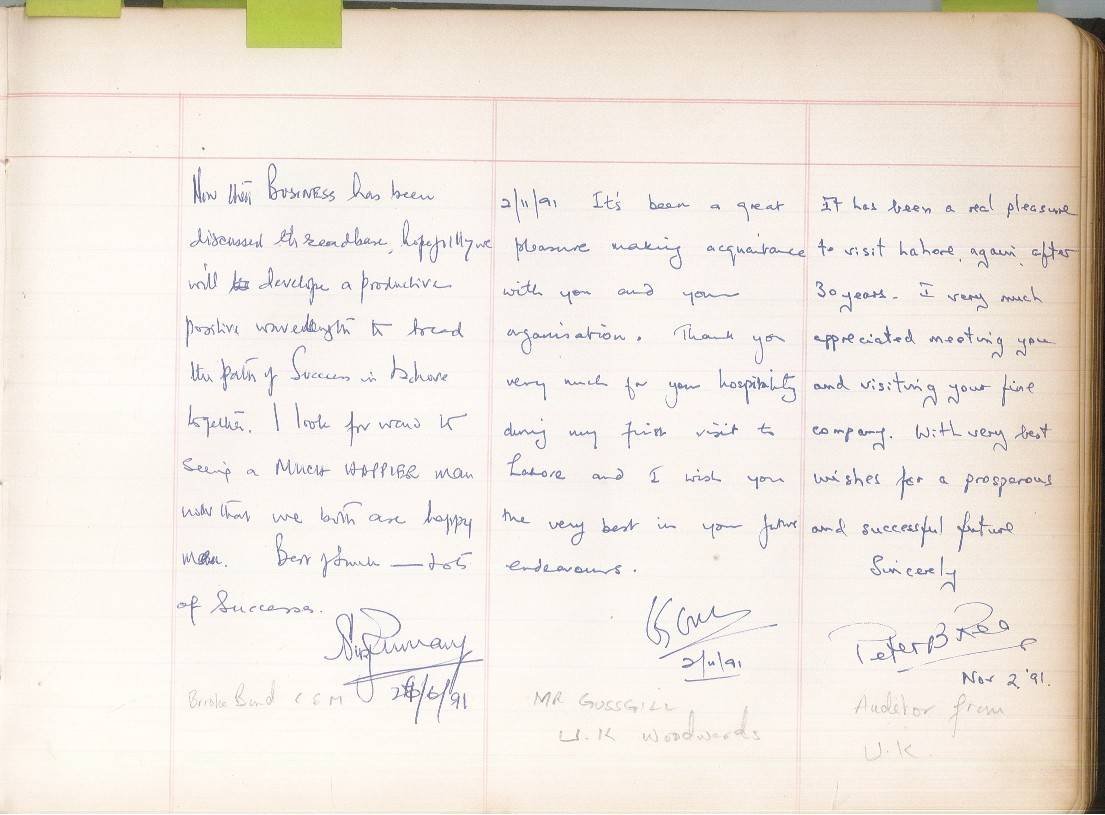 Now that BUSINESS has been
discussed threadbare, hopefully we
will develope a productive
positive wavelength to tread
the path of Success in Lahore
together. I look forward to
seeing a MUCH HAPPIER man
now that we both are happy
men. Best of luck — Lots
of Success.
26/6/91
Brooke Bond C S M
2/11/91 It's been a great
pleasure making acquaintance
with you and your
organisation. Thank you
very much for your hospitality
during my first visit to
Lahore and I wish you
the very best in your future
endeavours.
2/11/91
MR GUSSGILL
U.K Woodwards
It has been a real pleasure
to visit Lahore, again, after
30 years. I very much
appreciated meeting you
and visiting your fine
company. With very best
wishes for a prosperous
and successful future
Sincerely
Peter B
Nov 2, '91.
Auditor from
U.K.